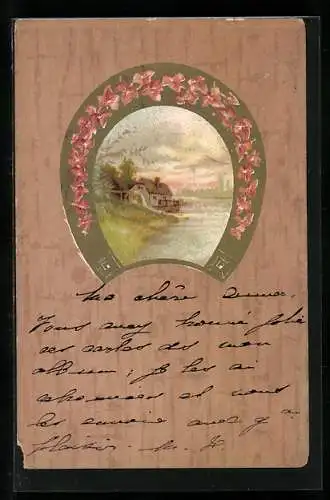 Ma chère Emma,
Vous avez trouvé jolie
ces cartes de mon
album ; je les ai
choisies et vous
les envoie avec
plaisir. M. F.